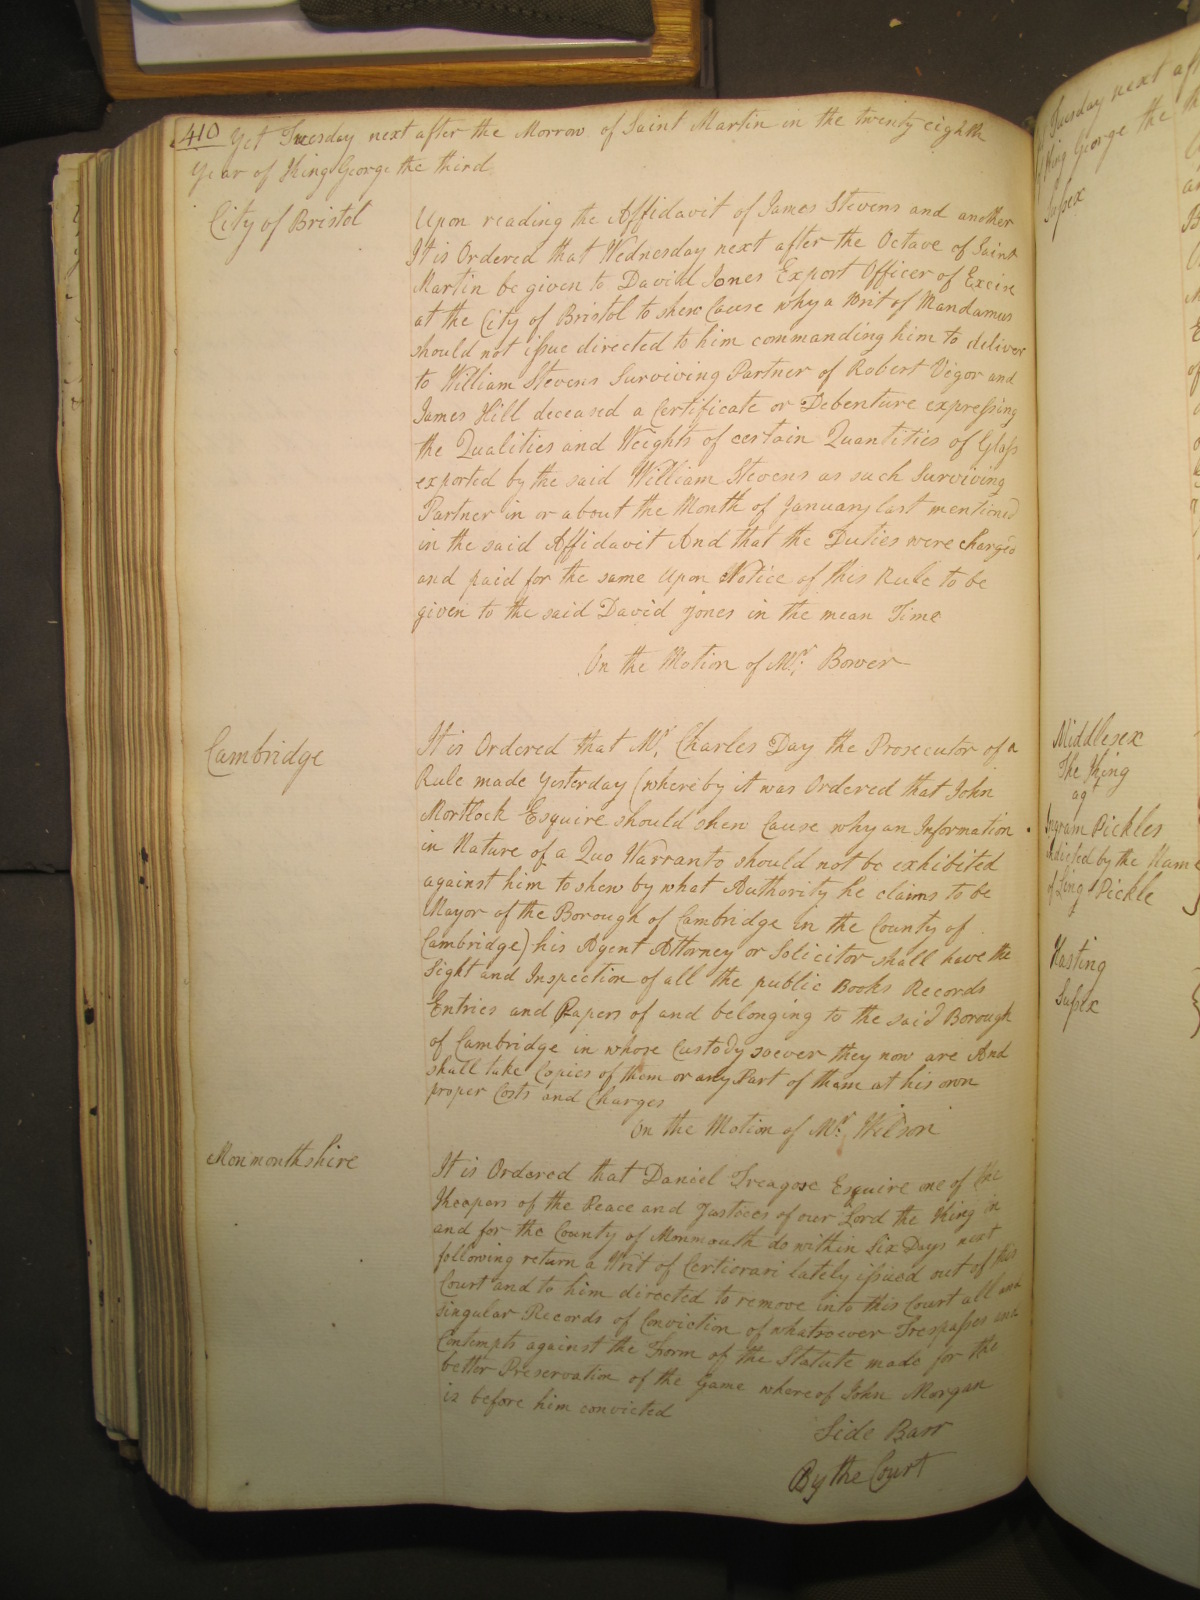 410 Yet Tuesday next after the Morrow of Saint Martin in the twenty eighth
Year of King George the third
City of Bristol
Upon reading the Affidavit of James Stevens and another
It is Ordered that Wednesday next after the Octave of Saint
Martin be given to David Jones Export Officer of Excise
at the City of Bristol to shew Cause why a Writ of Mandamus
should not issue directed to him commanding him to deliver
to William Stevens Surviving Partner of Robert Vigor and
James Hill deceased a Certificate or Debenture expressing
the Qualities and Weights of certain Quantities of Glass
exported by the said William Stevens as such Surviving
Partner in or about the Month of January last mentioned
in the said Affidavit And that the Duties were charged
and paid for the same Upon Notice of this Rule to be
given to the said David Jones in the mean Time
On the Motion of Mr. Bower
Cambridge
It is Ordered that Mr. Charles Day the Prosecutor of a
Rule made Yesterday (whereby it was Ordered that John
Mortlock Esquire should shew Cause why an Information
in Nature of a Quo Warranto should not be exhibited
against him to shew by what Authority he claims to be
Mayor of the Borough of Cambridge in the County of
Cambridge) his Agent Attorney or Solicitor shall have the
Sight and Inspection of all the public Books Records
Entries and Papers of and belonging to the said Borough
of Cambridge in whose Custody soever they now are And
shall take Copies of them or any Part of them at his own
proper Costs and Charges
On the Motion of Mr. Wilson
Monmouthshire
It is Ordered that Daniel Treagose Esquire one of the
Keepers of the Peace and Justices of our Lord the King in
and for the County of Monmouth do within Six Days next
following return a Writ of Certiorari lately issued out of this
Court and to him directed to remove into this Court all and
singular Records of Conviction of whatsoever Trespasses and
Contempts against the Form of the Statute made for the
better Preservation of the Game whereof John Morgan
is before him convicted
Side Barr
By the Court
Tuesday next
King George the
Sussex
Middlesex
The King
agt
Ingram Pickles
indicted by the Name
of Pickle
Hasting
Sussex